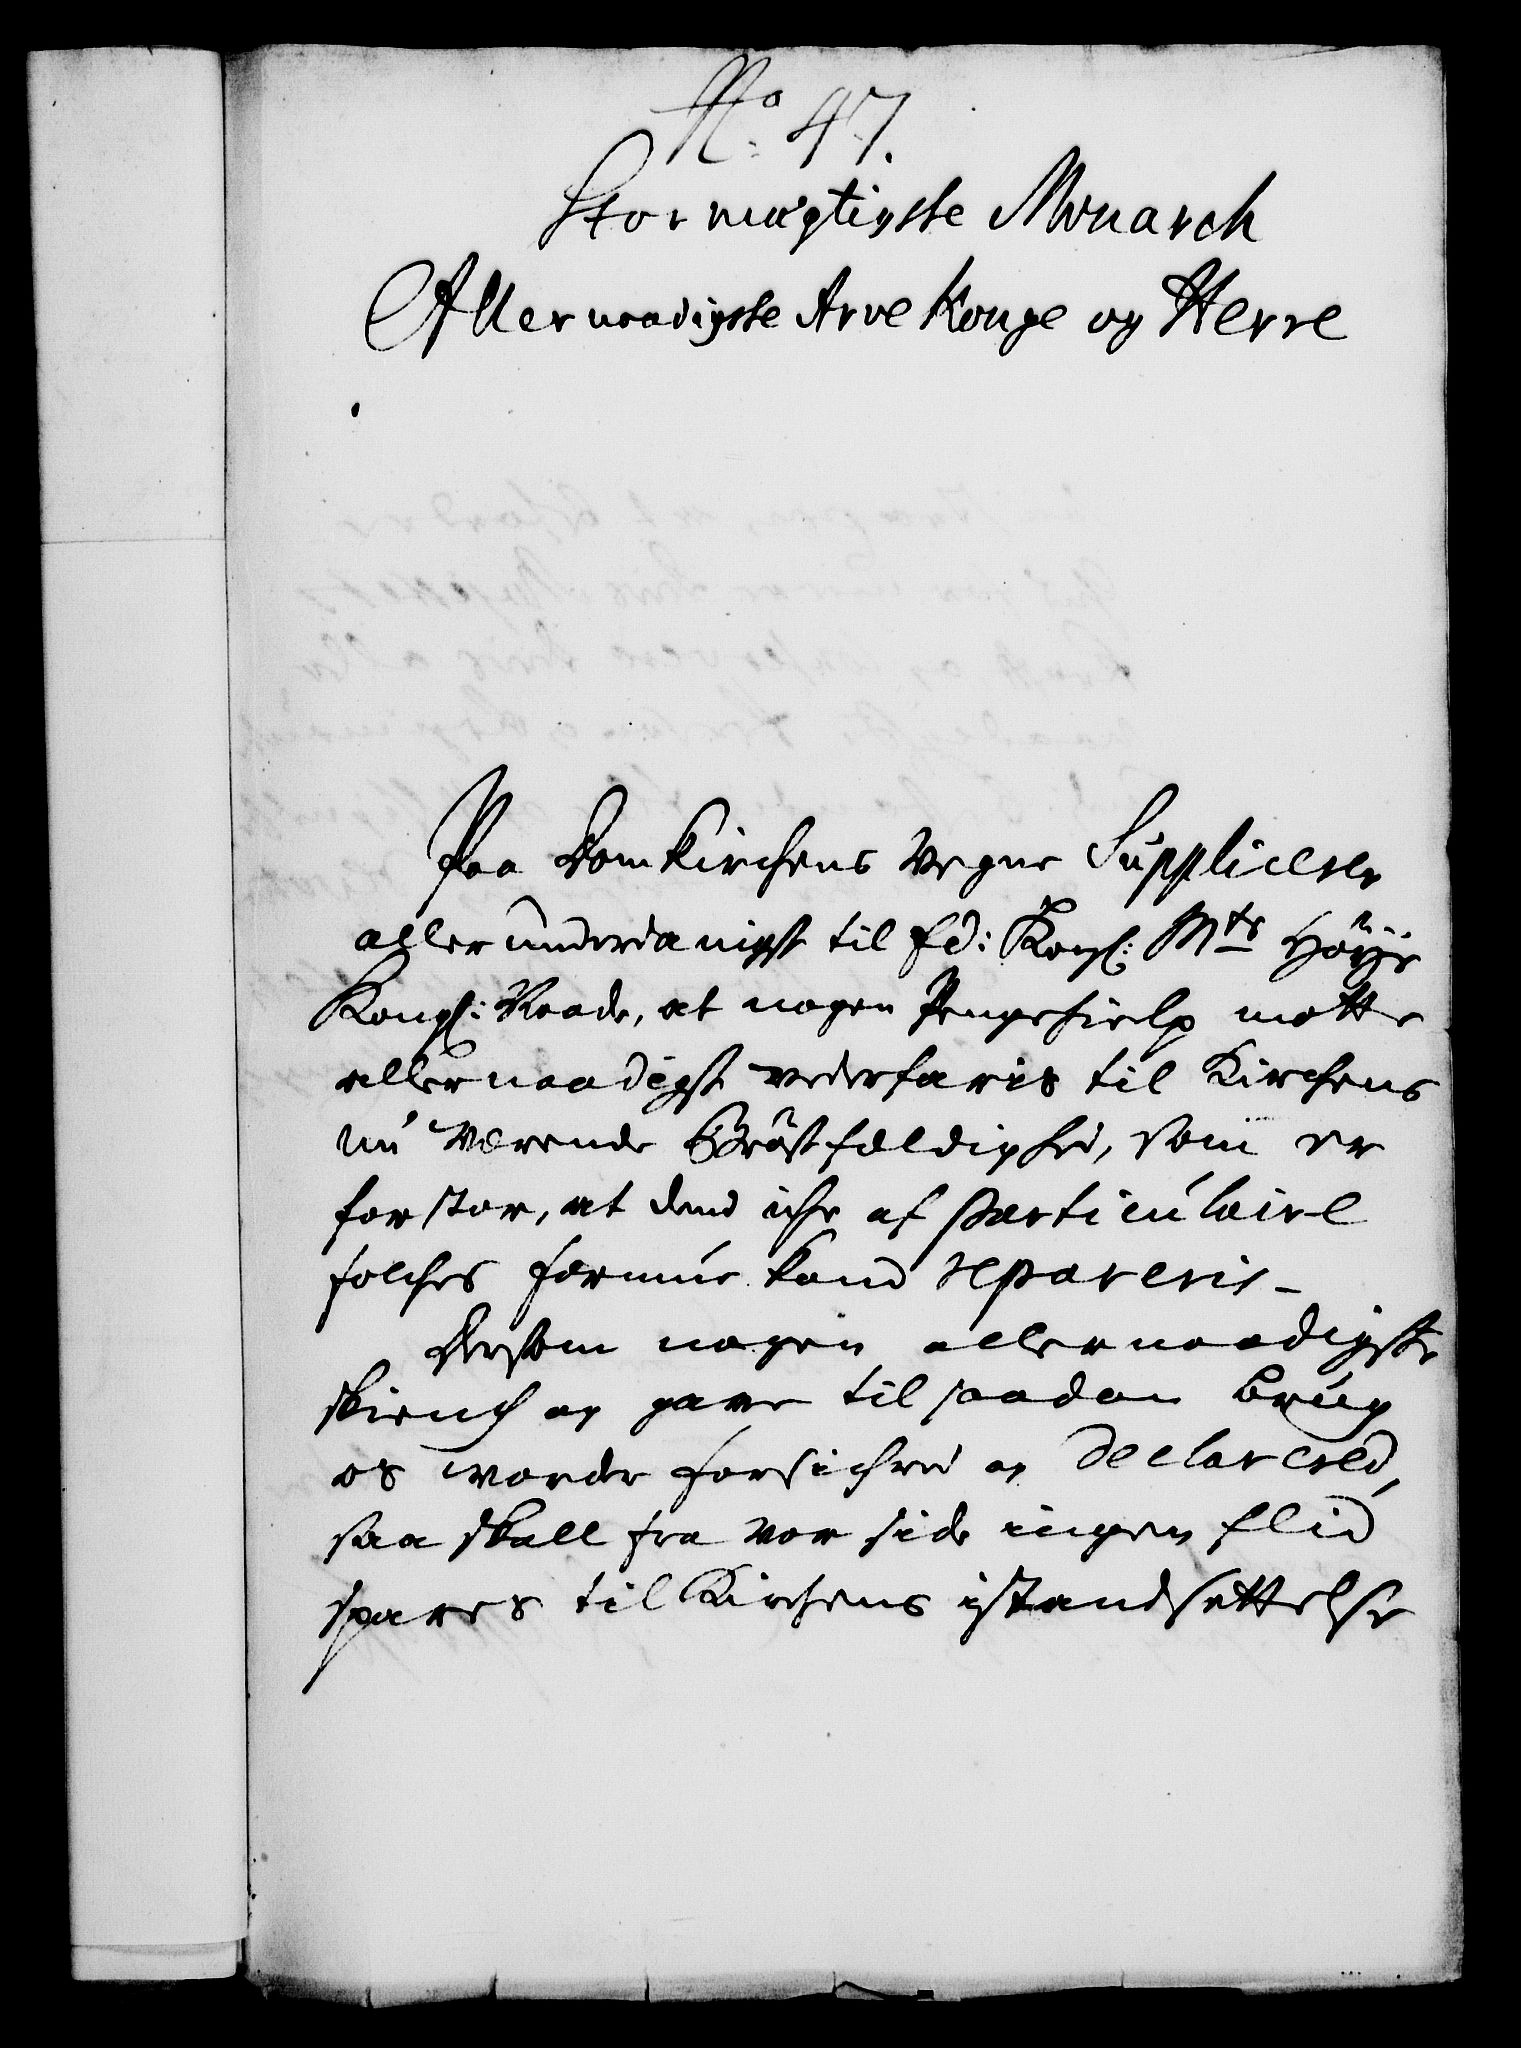 No: 47.
Stormægtigste Monarch
Allernaadigste Arve Konge og Herre
Paa Domkirchens Vegne Supplicerer
allerunderdanigst til Ed: Kongl: Mts Høÿe
Kongl: Naade, at nogen Pengehielp motte
allernaadigst vederfaris til Kirchens
nu værende Brøstfældighed, som er
for stor, at dend iche af particulaire
folches formue kand repareris_
Dersom nogen allernaadigste
skiench og gave til saadan brug
os vorder forsichred og declarered,
saa skall fra vor side ingen flid
spares til Kirchens istandsettelse